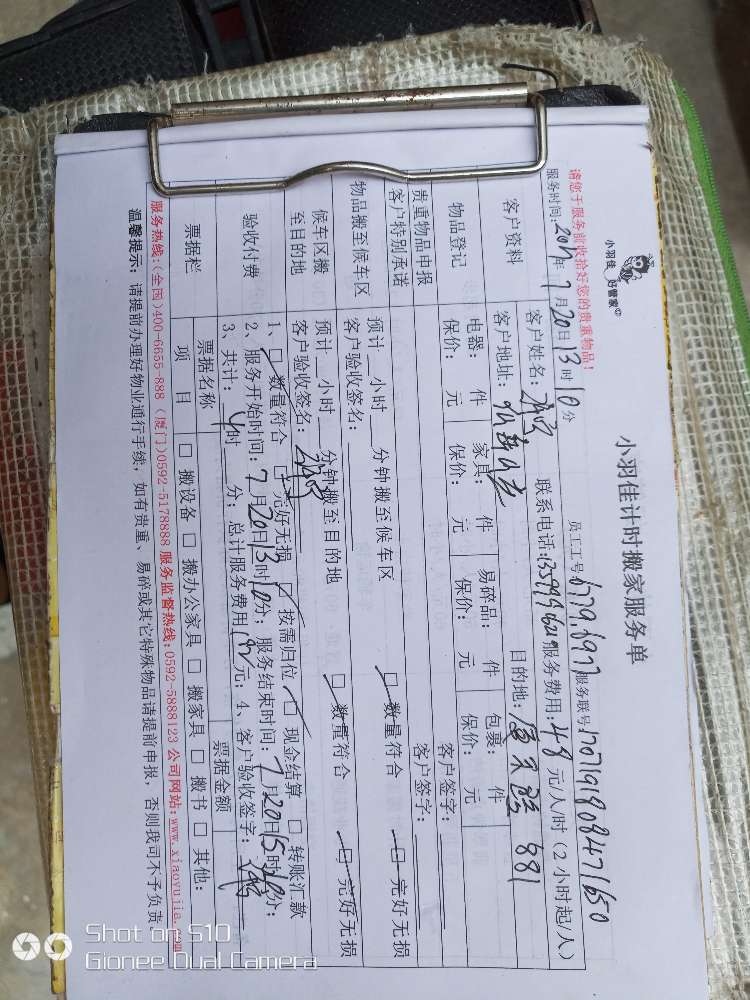 小羽佳 好管家
小羽佳计时搬家服务单
请您于服务前收拾好您的贵重物品!
员工工号 6779.6977 服务联号: 1707191808471650
服务时间: 2017年 7月20日13时10分
客户资料
客户姓名: 联系电话: 服务费用: 48 元/人/时 (2 小时起/人)
客户地址: 目的地: 881
物品登记
电器: 件 家具: 件 易碎品: 件 包裹: 件
保价: 元 保价: 元 保价: 元 保价: 元
贵重物品申报 客户签字:
客户特别承诺 客户签字:
物品搬至候车区
预计 小时 分钟搬至候车区 □ 数量符合 □ 完好无损
客户验收签名:
候车区搬至目的地
预计 小时 分钟搬至目的地 □ 数量符合 □ 完好无损
客户验收签名:
验收付费
1、□ 数量符合 □ 完好无损 □ 按需归位 □ 现金结算 □ 转账汇款
2、服务开始时间: 7月20日13时10分; 服务结束时间: 7月20日15时 分;
3、共计: 4时 分; 总计服务费用 192元; 4、客户验收签字:
票据栏
票据名称 票据金额
项 目 □ 搬设备 □ 搬办公家具 □ 搬家具 □ 搬书 □ 其他:
服务热线:(全国)400-6655-888 (厦门)0592-5178888 服务监督热线:0592-5888123 公司网站:www.xiaoyujia.com
温馨提示: 请提前办理好物业通行手续, 如有贵重、易碎或其它特殊物品请提前申报, 否则我司不予负责
Shot on S10
Gionee Dual Camera